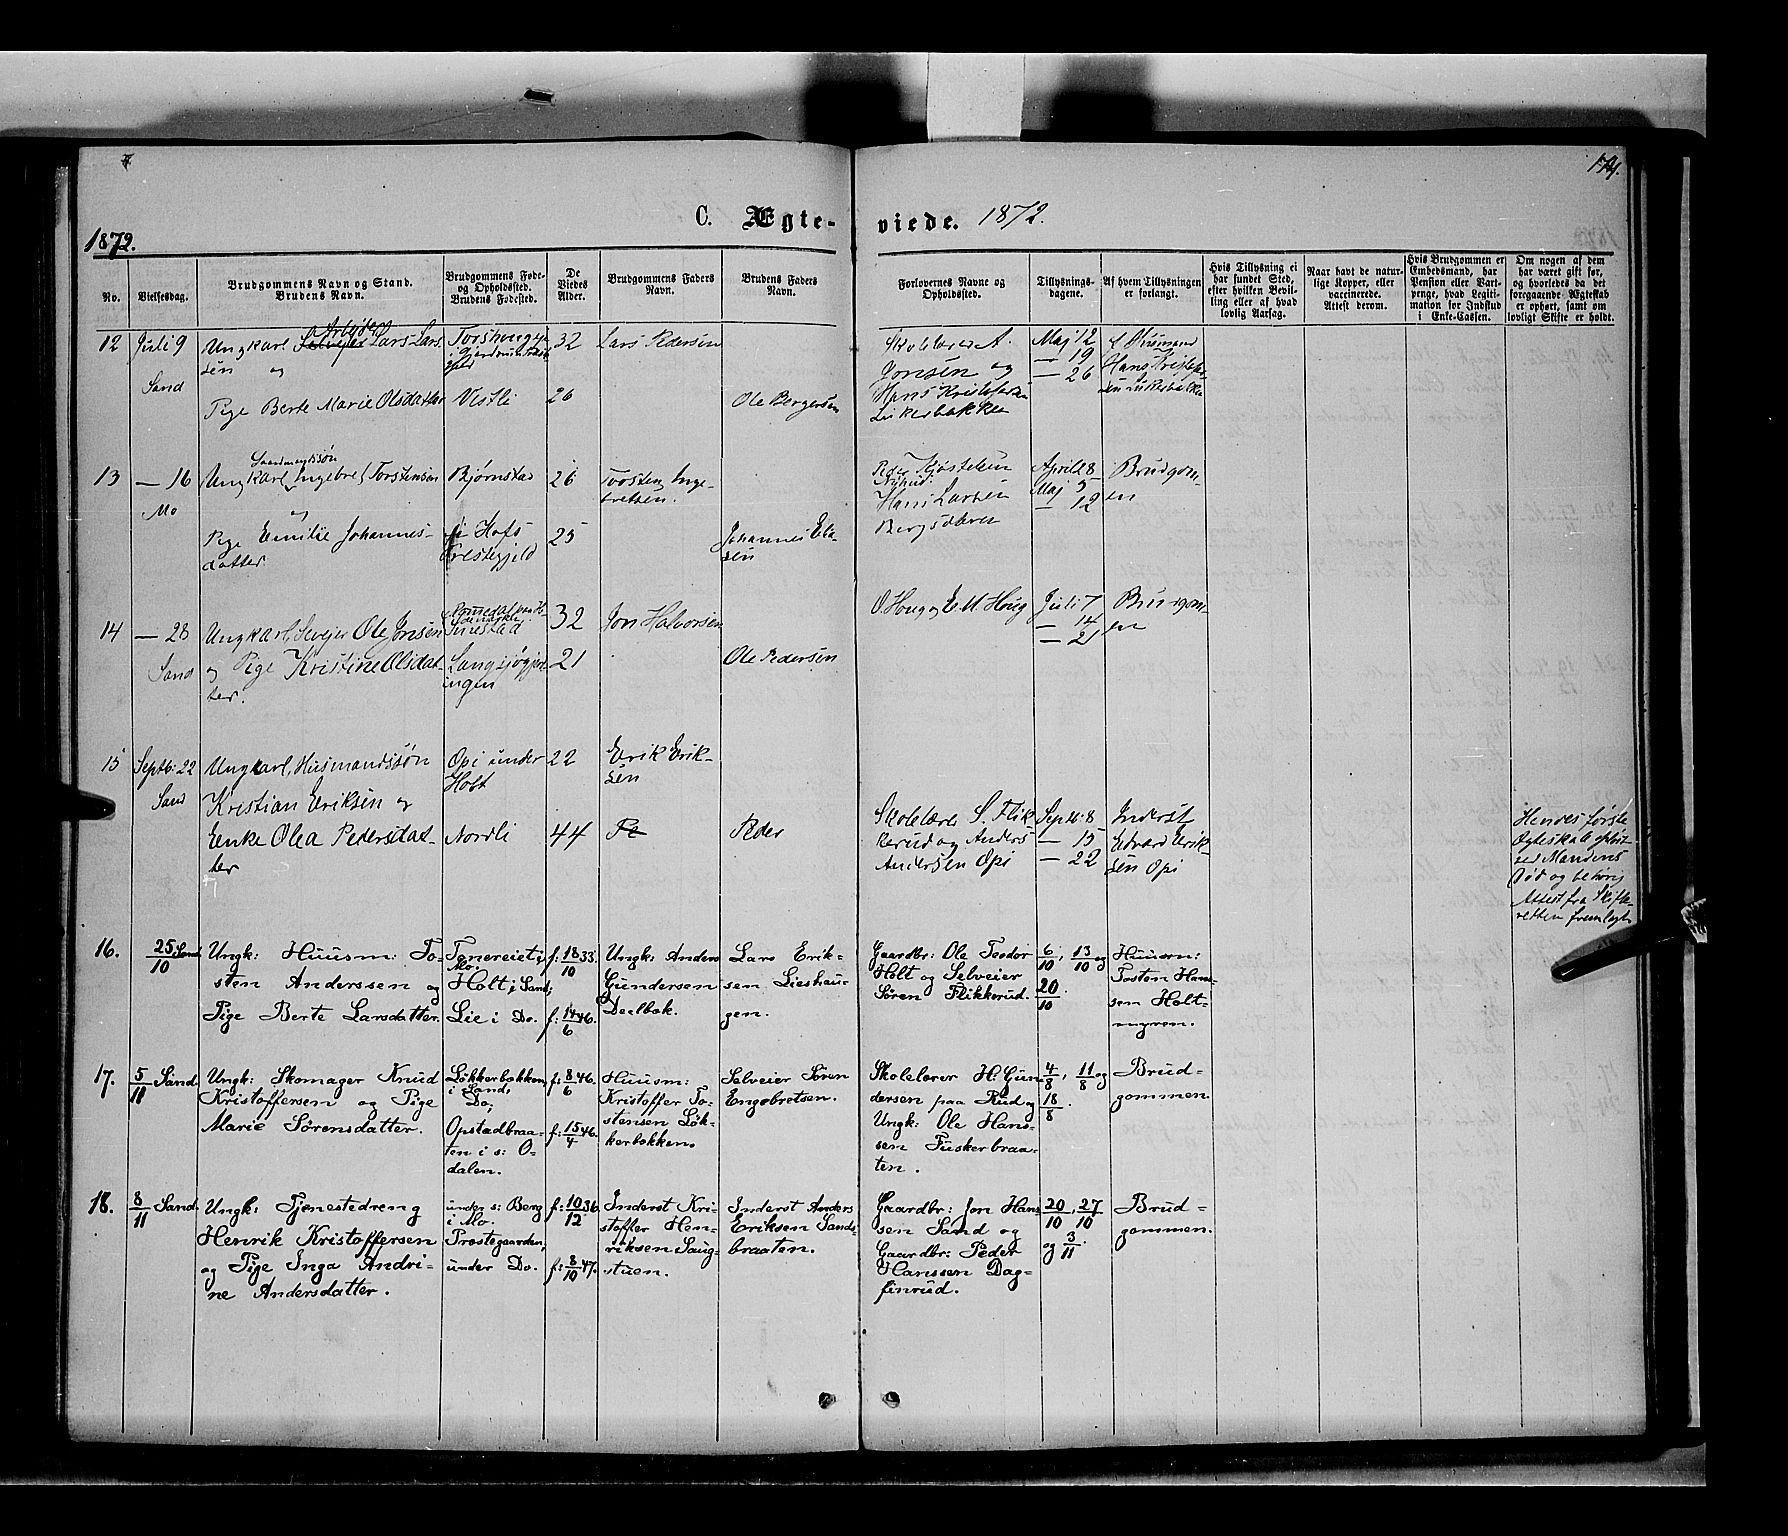 C. Ægte- viede. 1872.
1872.
No.
Vielsesdag.
Brudgommens Navn og Stand.
Brudens Navn.
Brudgommens Føde-
og Opholdssted.
Brudens Fødested.
De
Viedes
Alder.
Brudgommens Faders
Navn.
Brudens Faders
Navn.
Forlovernes Navne og
Opholdssted.
Tillysnings-
dagene.
Af hvem Tillysningen
er forlangt.
Hvis Tillysning ei
har fundet Sted,
efter hvilken Bevil-
ling eller af hvad
lovlig Aarsag.
Naar havt de natur-
lige Kopper, eller
vaccinerede.
Attest derom.
Hvis Brudgommen er
Embedsmand, har
Pension eller Vart-
penge, hvad Legiti-
mation for Indskud
i Enke-Cassen.
Om nogen af dem
har været gift før,
og hvorledes da det
foregaaende Ægteskab
er ophørt, samt om
lovligt Skifte er holdt.
12
Juli 9
Sand
Arbejder
Ungkarl Selvejer Lars Lars
sen og
Pige Berte Marie Olsdatter
Vestli
32
26
Lars Pedersen
Ole Bergersen
Skolelærer A.
Jonsen og
Hans Kristoffersen
Maj 12
— 19
— 26
Husmand
13
— 16
Mo
Gaardmandssøn
Ungkarl Ingebret Torstensen
og
Pige Emilie Johannes-
datter
Bjørnstad
fr Hofs
Prestegjeld
26
25
Torsten Inge-
bretsen.
Johannes Elia-
sen
Hans Larsen
April 28
Maj 5
— 12
Brudgom-
en
14
— 28
Sand
Ungkarl, Selvejer Ole Jonsen
og Pige Kristine Olsdat-
ter.
32
21
Jon Halvorsen
Ole Pedersen
O. Houg og E. M. Houg
Juli 7
— 14
— 21
Brudgom-
en
15
Septb: 22
Sand
Ungkarl, Husmandssøn
Kristian Eriksen og
Enke Olea Pedersdat-
ter
Opi under
Holt
Nordli
22
44
Erik Erik-
sen
Pe
Peder
Skolelærer S. Flik-
kerud og Anders
Andersen Opi
Septb: 8
— 15
— 22
Inderst
Edvard Erik-
sen Opi
Hendes første
Egteskab ophørt
ved Mandens
Død og behørig
Attest fra Skifte-
retten fremlagt
16.
25/10 Sand
Ungk: Huusm: To-
sten Anderssen og
Pige Berte Larsdatter.
Tonereiet i
Mo.
Holt i Sand;
Lie i Do.
f: 18/10 33.
f: 14/6 46.
Ungk: Anders
Gundersen
Deelbak.
Lars Erik-
sen Lieshau-
gen.
Gaardbr: Ole Teodor
Holt og Selveier
Sören Flikkerud.
6/10, 13/10 og
20/10.
Huusm:
Tosten Hans-
sen Holt-
myren.
17.
5/11 Sand
Ungk: Skomager Knud
Kristoffersen og Pige
Marie Sörensdatter.
Løkkerbakken
i Sand,
Do;
Opstadbraa-
ten i s: O-
dalen.
f: 8/6 46.
f: 15/4 46.
Huusm:
Kristoffer To-
stensen Løk-
kerbakken.
Selveier Sören
Engebretsen.
Skolelærer H: Gun-
dersen paa Rud og
Ungk: Ole Hans-
sen Tuskerbraa-
ten.
4/8, 11/8 og
18/8.
Brud-
gommen
18.
8/11 Sand.
Ungk: Tjenestedreng
Henrik Kristoffersen
og Pige Inga Andri-
ne Andersdatter.
under s: Berg
i Mo.
Præstegaarden,
under Do.
f: 10/12 36.
f: 8/10 47.
Inderst Kri-
stoffer Hen-
riksen Saug-
stuen.
Inderst Anders
Eriksen Sands-
braaten.
Gaardbr: Jon Hans
sen Sand og
Gaardbr: Peder
Hanssen Dag-
finrud.
20/10, 27/10
og 3/11.
Brud-
gommen.